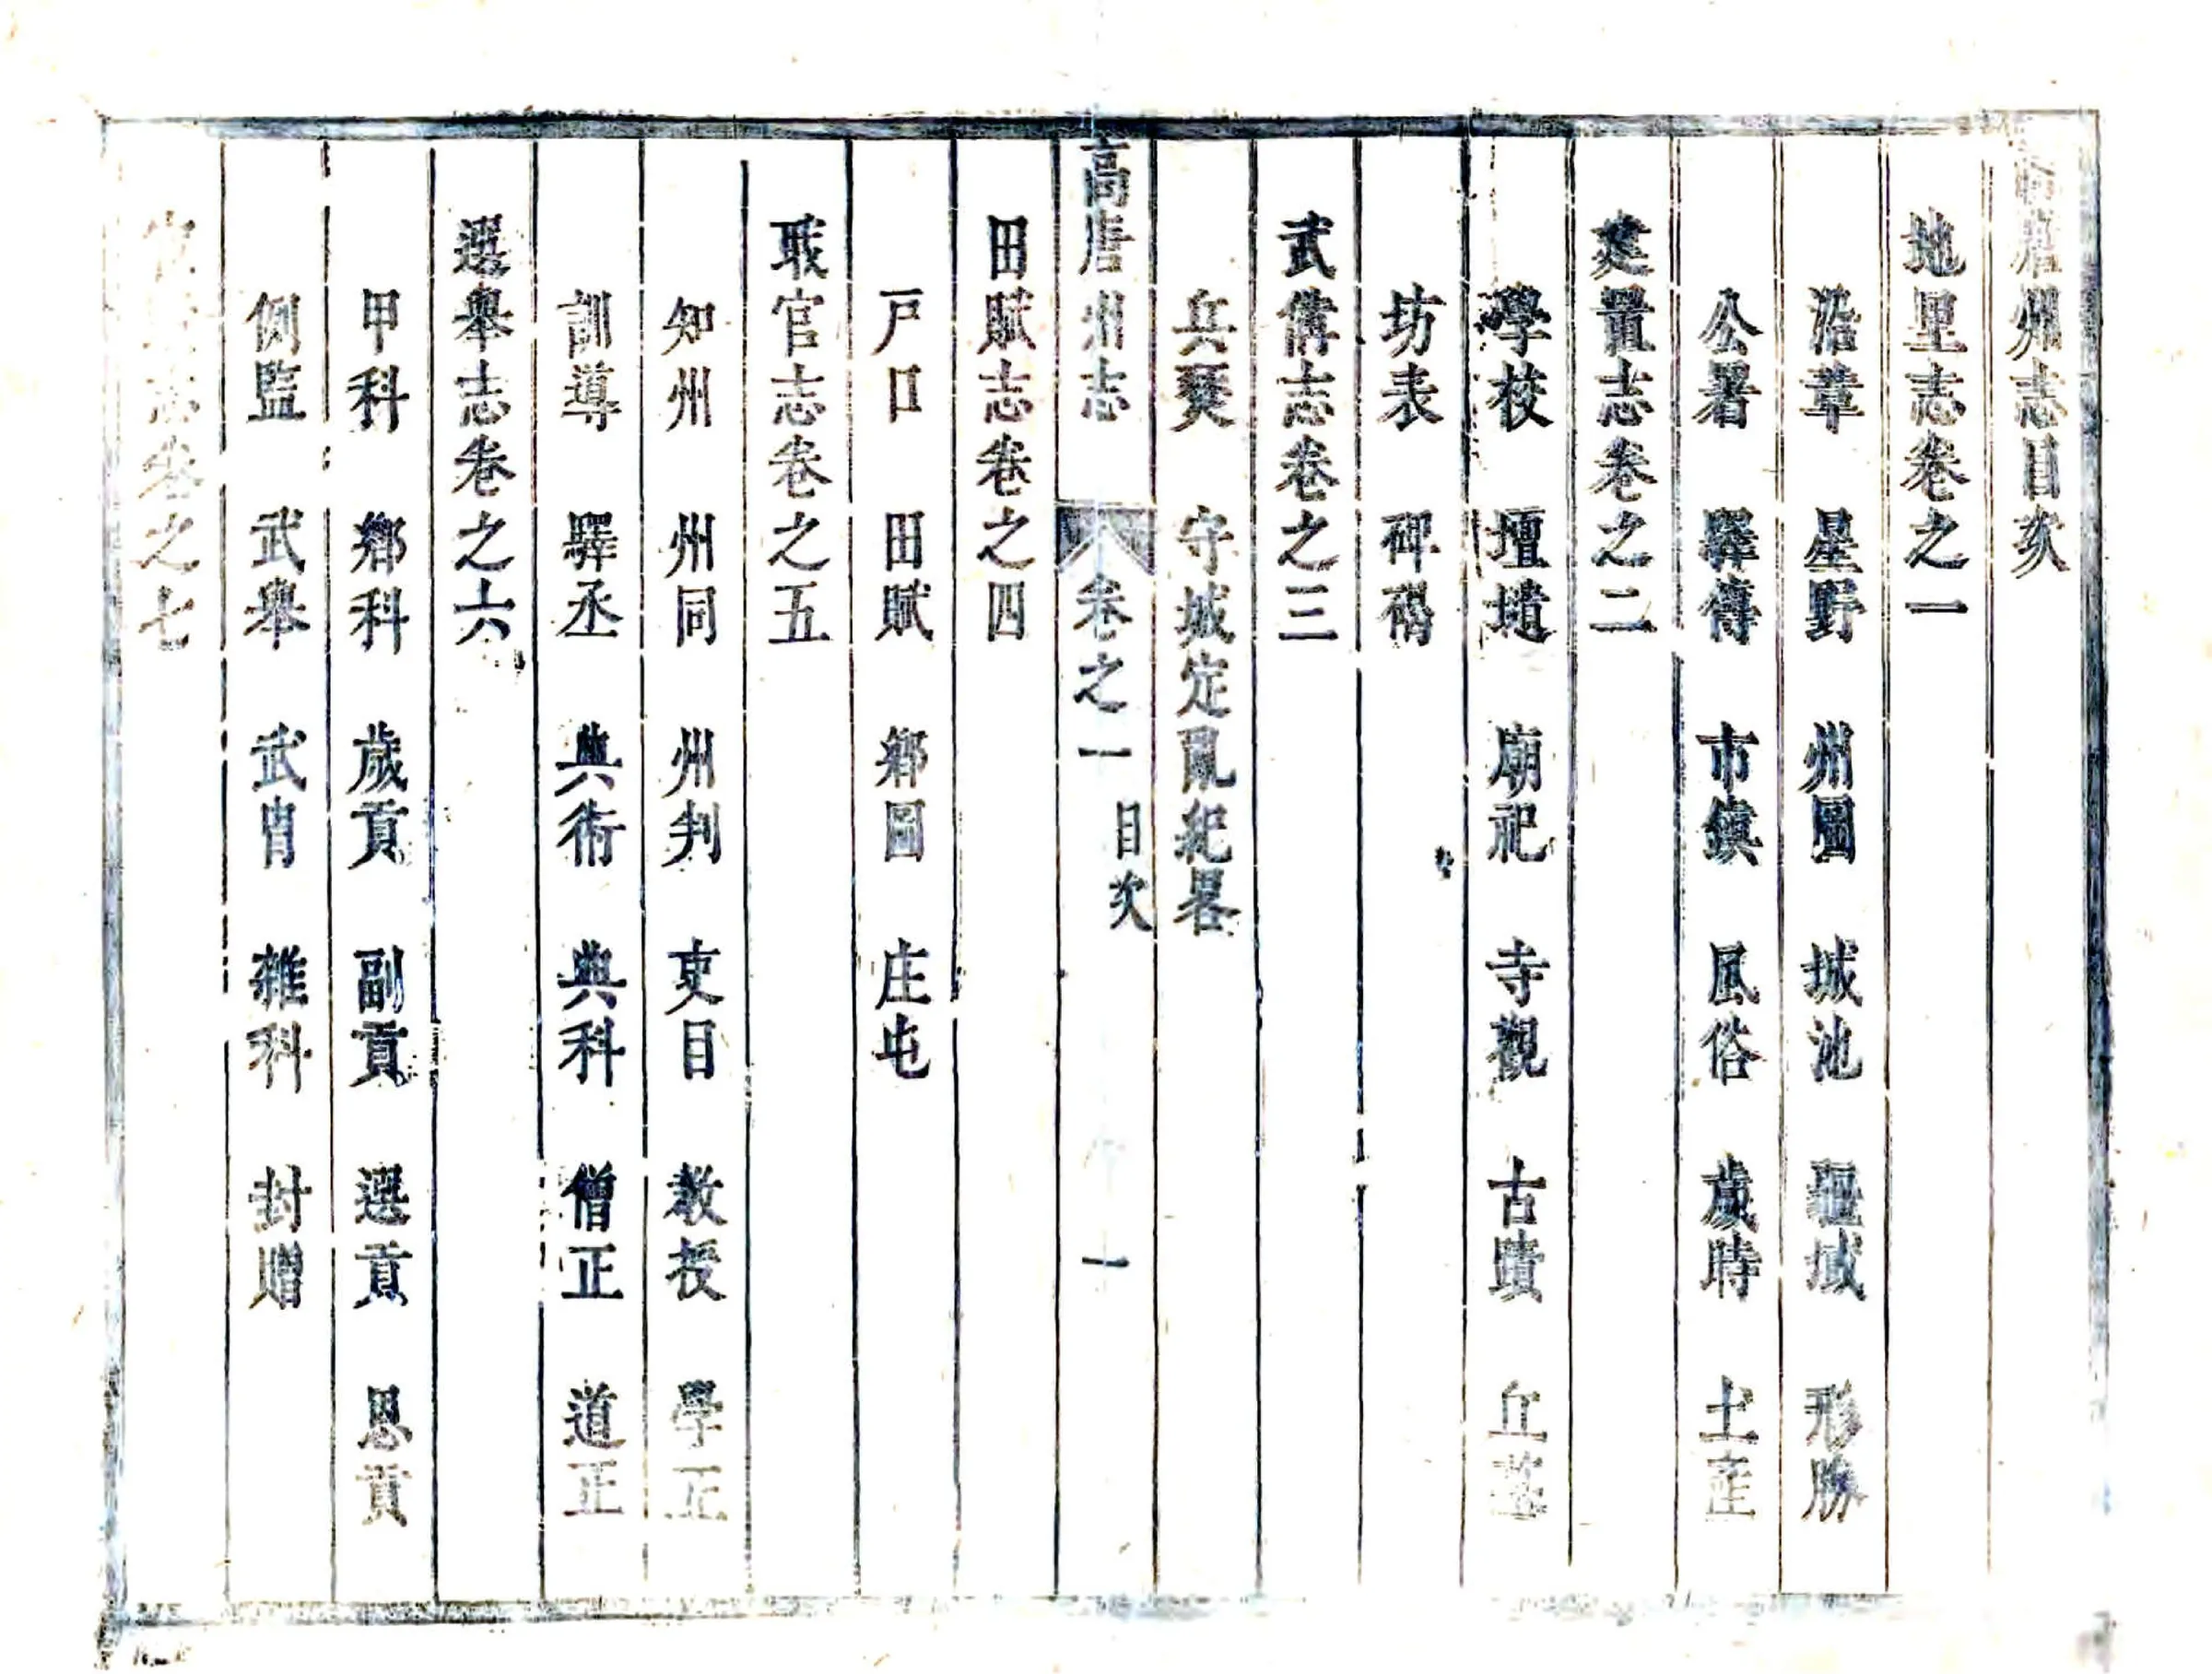 高唐州志目次
地里志卷之一
沿革 星野 州圖 城池 疆域 形勝
公署 驛傳 市鎮 風俗 歲時 土產
建置志卷之二
學校 壇壝 廟祀 寺觀 古蹟 丘墓
坊表 碑碣
武俻志卷之三
兵燹 守城定亂紀畧
高唐州志 卷之一 目次 一
田賦志卷之四
戸口 田賦 鄉圖 庄屯
职官志卷之五
知州 州同 州判 吏目 教授 學正
訓導 驛丞 典術 典科 僧正 道正
選舉志卷之六
甲科 鄉科 歲貢 副貢 選貢 恩貢
例監 武舉 武胄 雜科 封贈
志卷之七